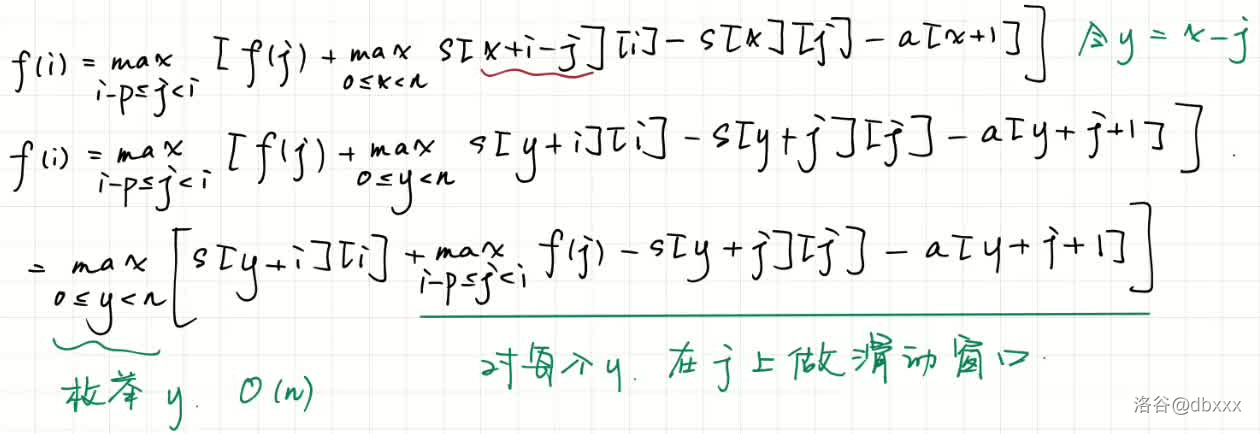 f(i) = max i-p≤j<i [f(j) + max 0≤x<n s[x+i-j][i] - s[x][j] - a[x+1]] 令 y = x-j
f(i) = max i-p≤j<i [f(j) + max 0≤y<n s[y+i][i] - s[y+j][j] - a[y+j+1]].
= max 0≤y<n [s[y+i][i] + max i-p≤j<i f(j) - s[y+j][j] - a[y+j+1]]
枚举 y. O(n)
对每个 y. 在 j 上做滑动窗口.
洛谷@dbxxx